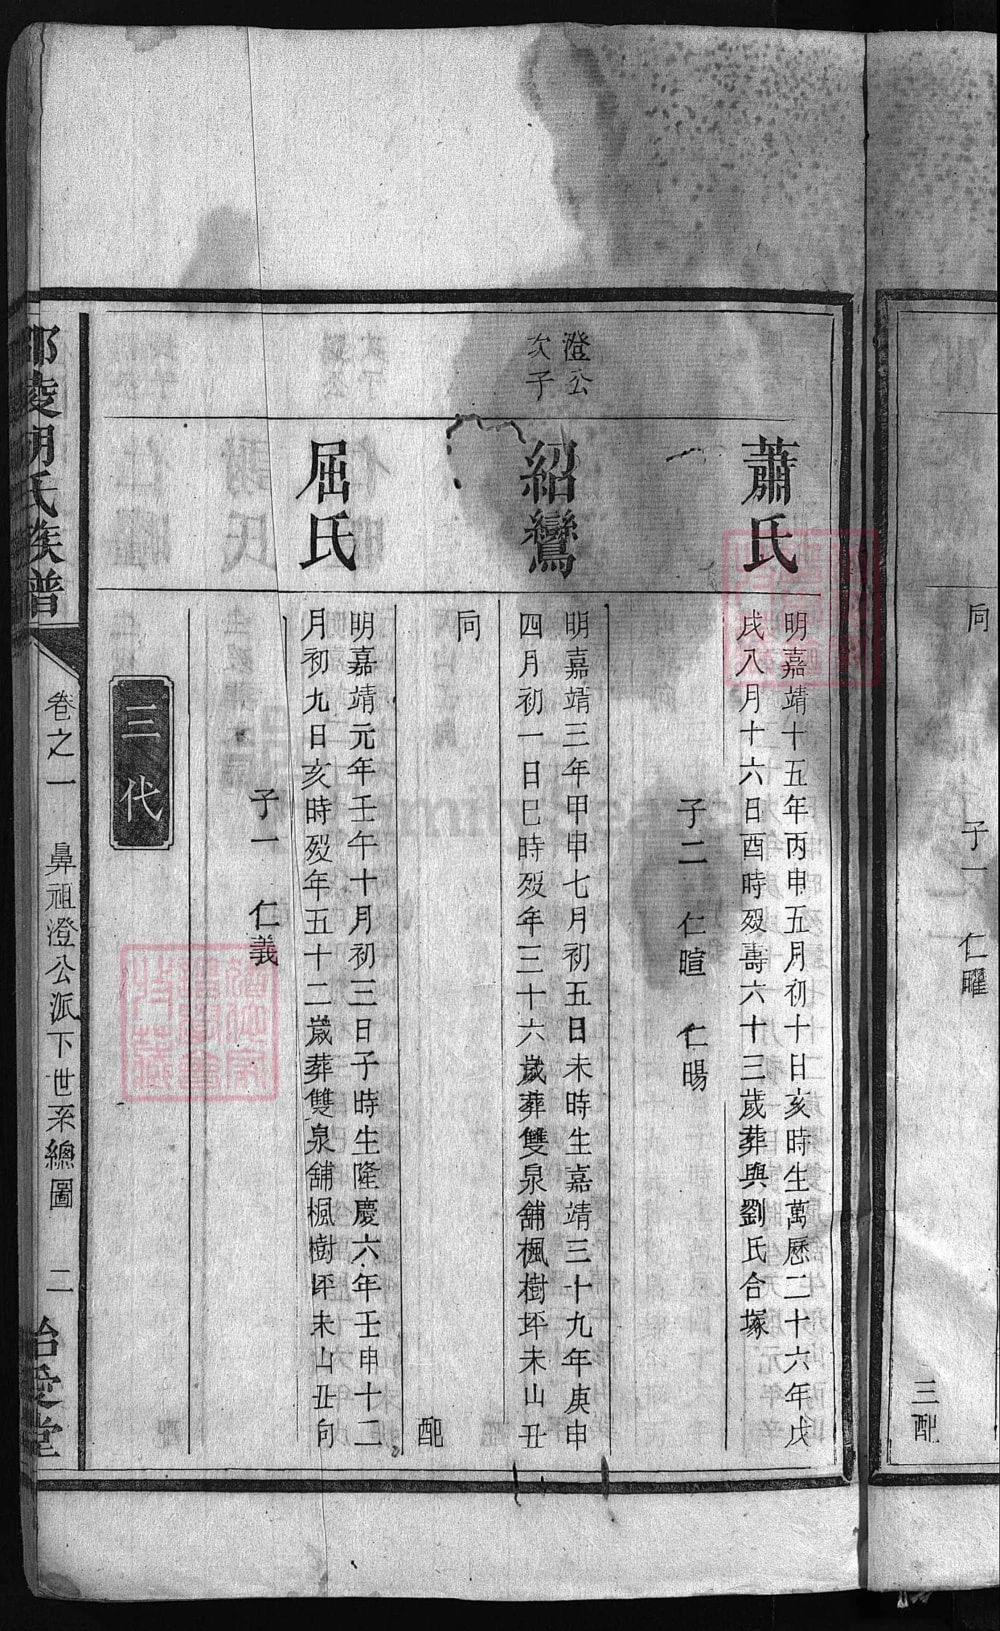 同
子一 仁曜
三配
蕭氏
明嘉靖十五年丙申五月初十日亥時生萬曆二十六年戊
戌八月十六日酉時歿壽六十三歲葬與劉氏合塚
子二 仁暄 仁暘
澄公
次子
紹鸞
明嘉靖三年甲申七月初五日未時生嘉靖三十九年庚申
四月初一日巳時歿年三十六歲葬雙泉舖楓樹坪未山丑
同
配
屈氏
明嘉靖元年壬午十月初三日子時生隆慶六年壬申十二
月初九日亥時歿年五十二歲葬雙泉舖楓樹坪未山丑向
子一 仁義
三代
邵陵胡氏族譜
卷之一 鼻祖澄公派下世系總圖 二